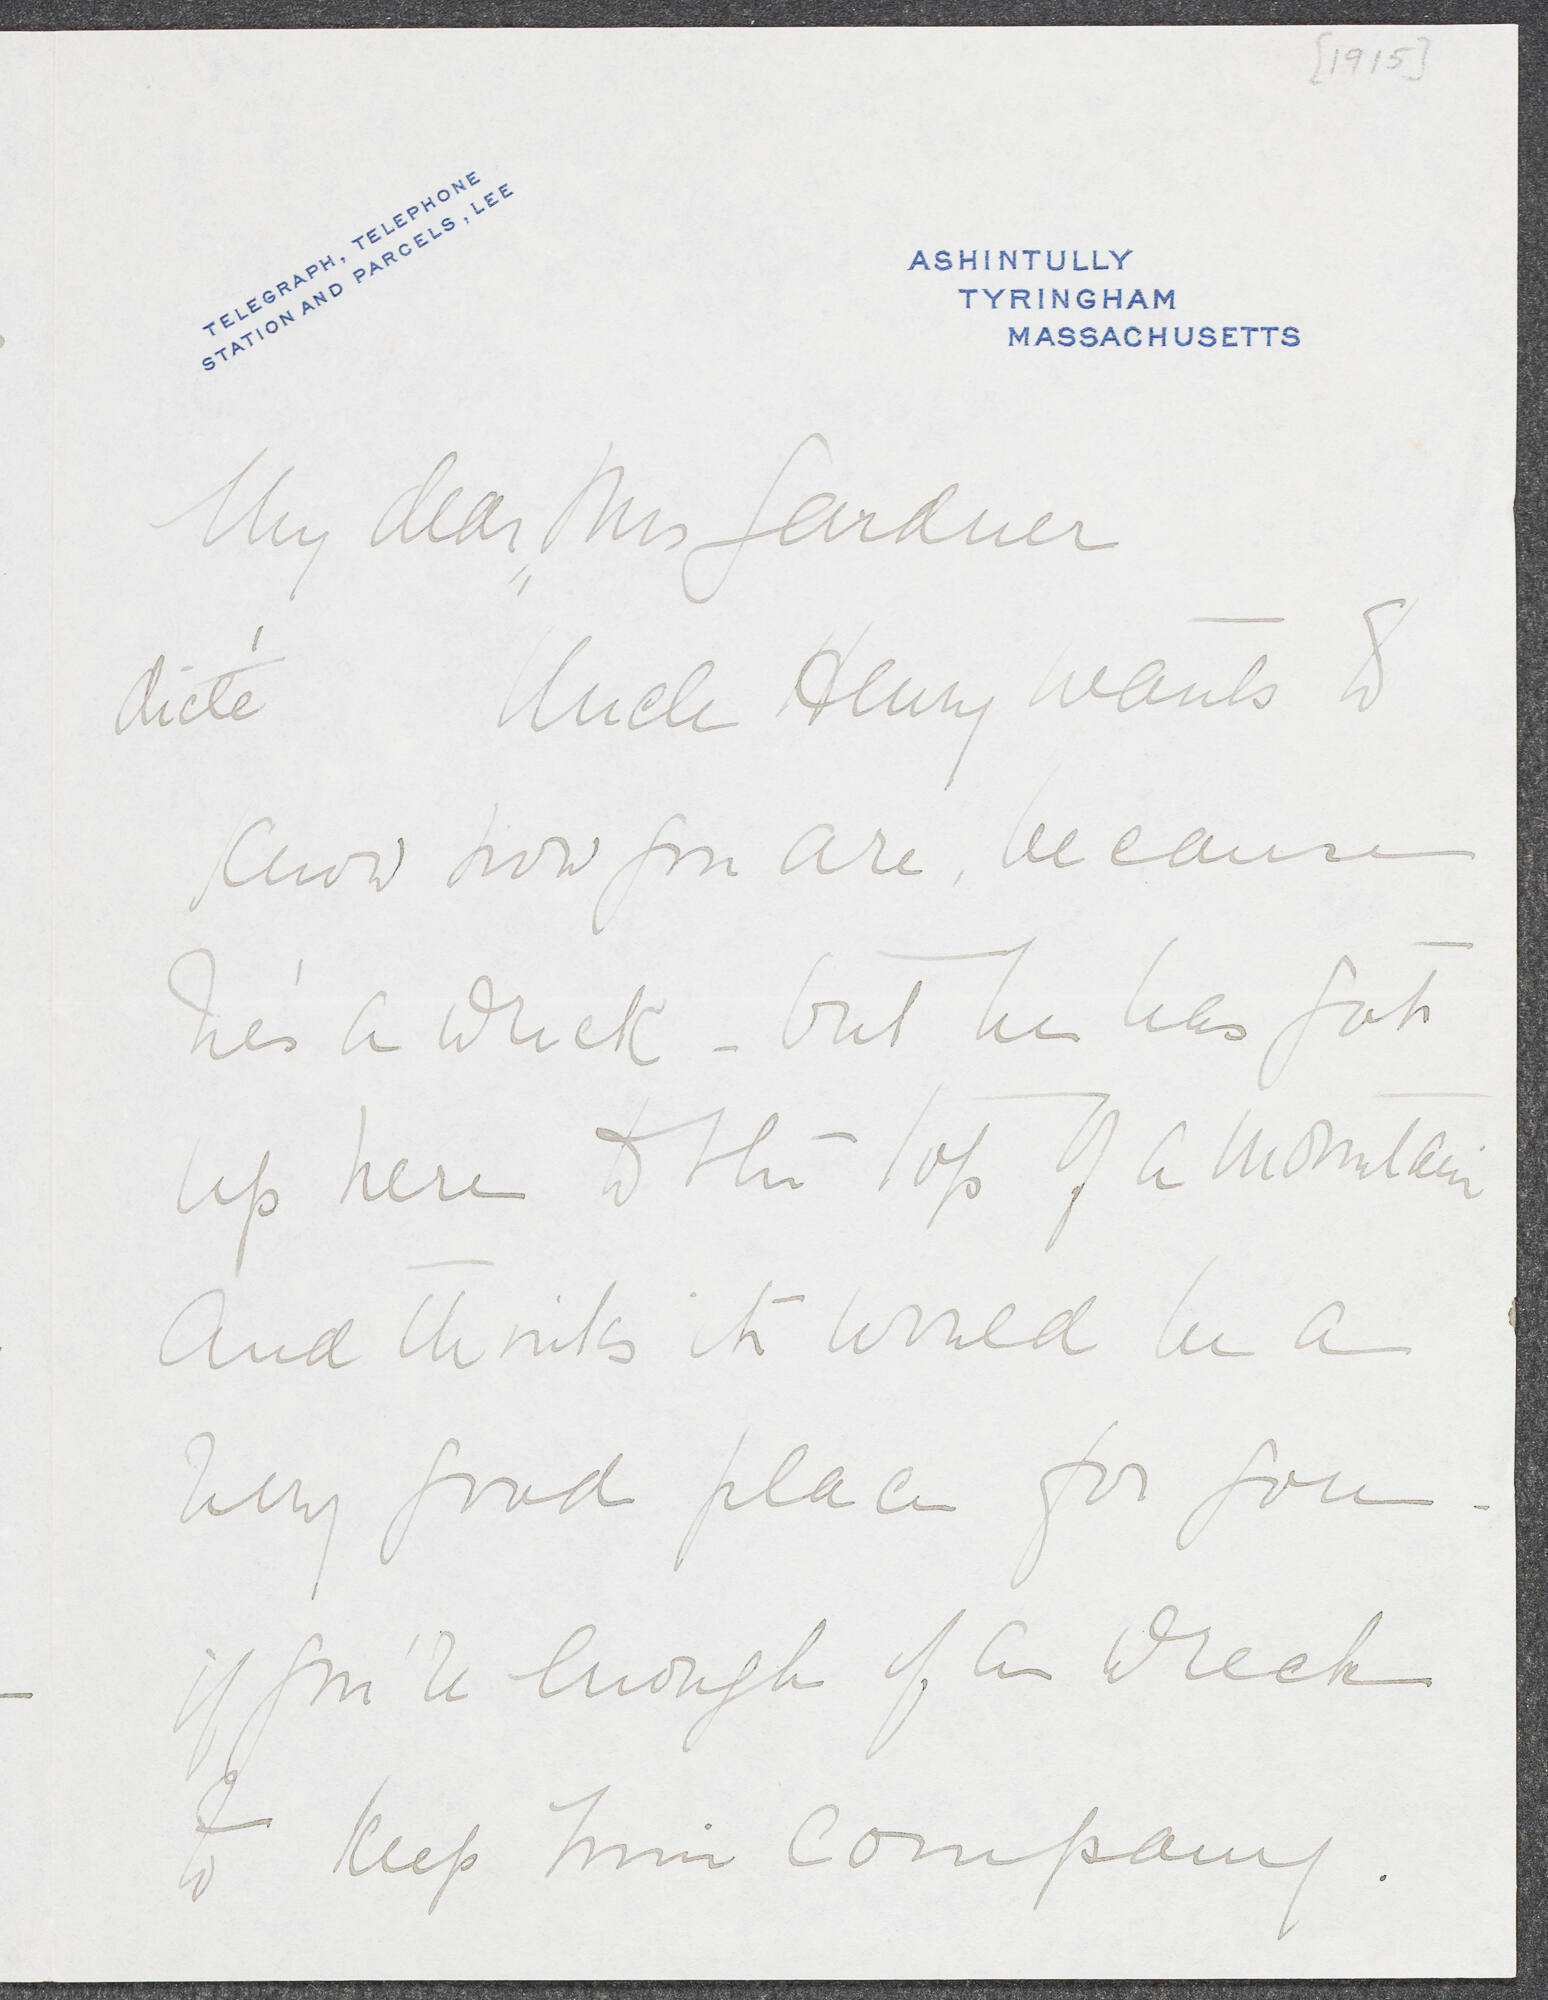 [1915]
TELEGRAPH, TELEPHONE
STATION AND PARCELS, LEE
ASHINTULLY
TYRINGHAM
MASSACHUSETTS
My dear Mrs Gardner
dicté Uncle Henry wants to
know how you are, because
he's a wreck - but he has got
up here to the top of a mountain
and thinks it would be a
very good place for you -
if you're enough of a wreck
to keep him company.